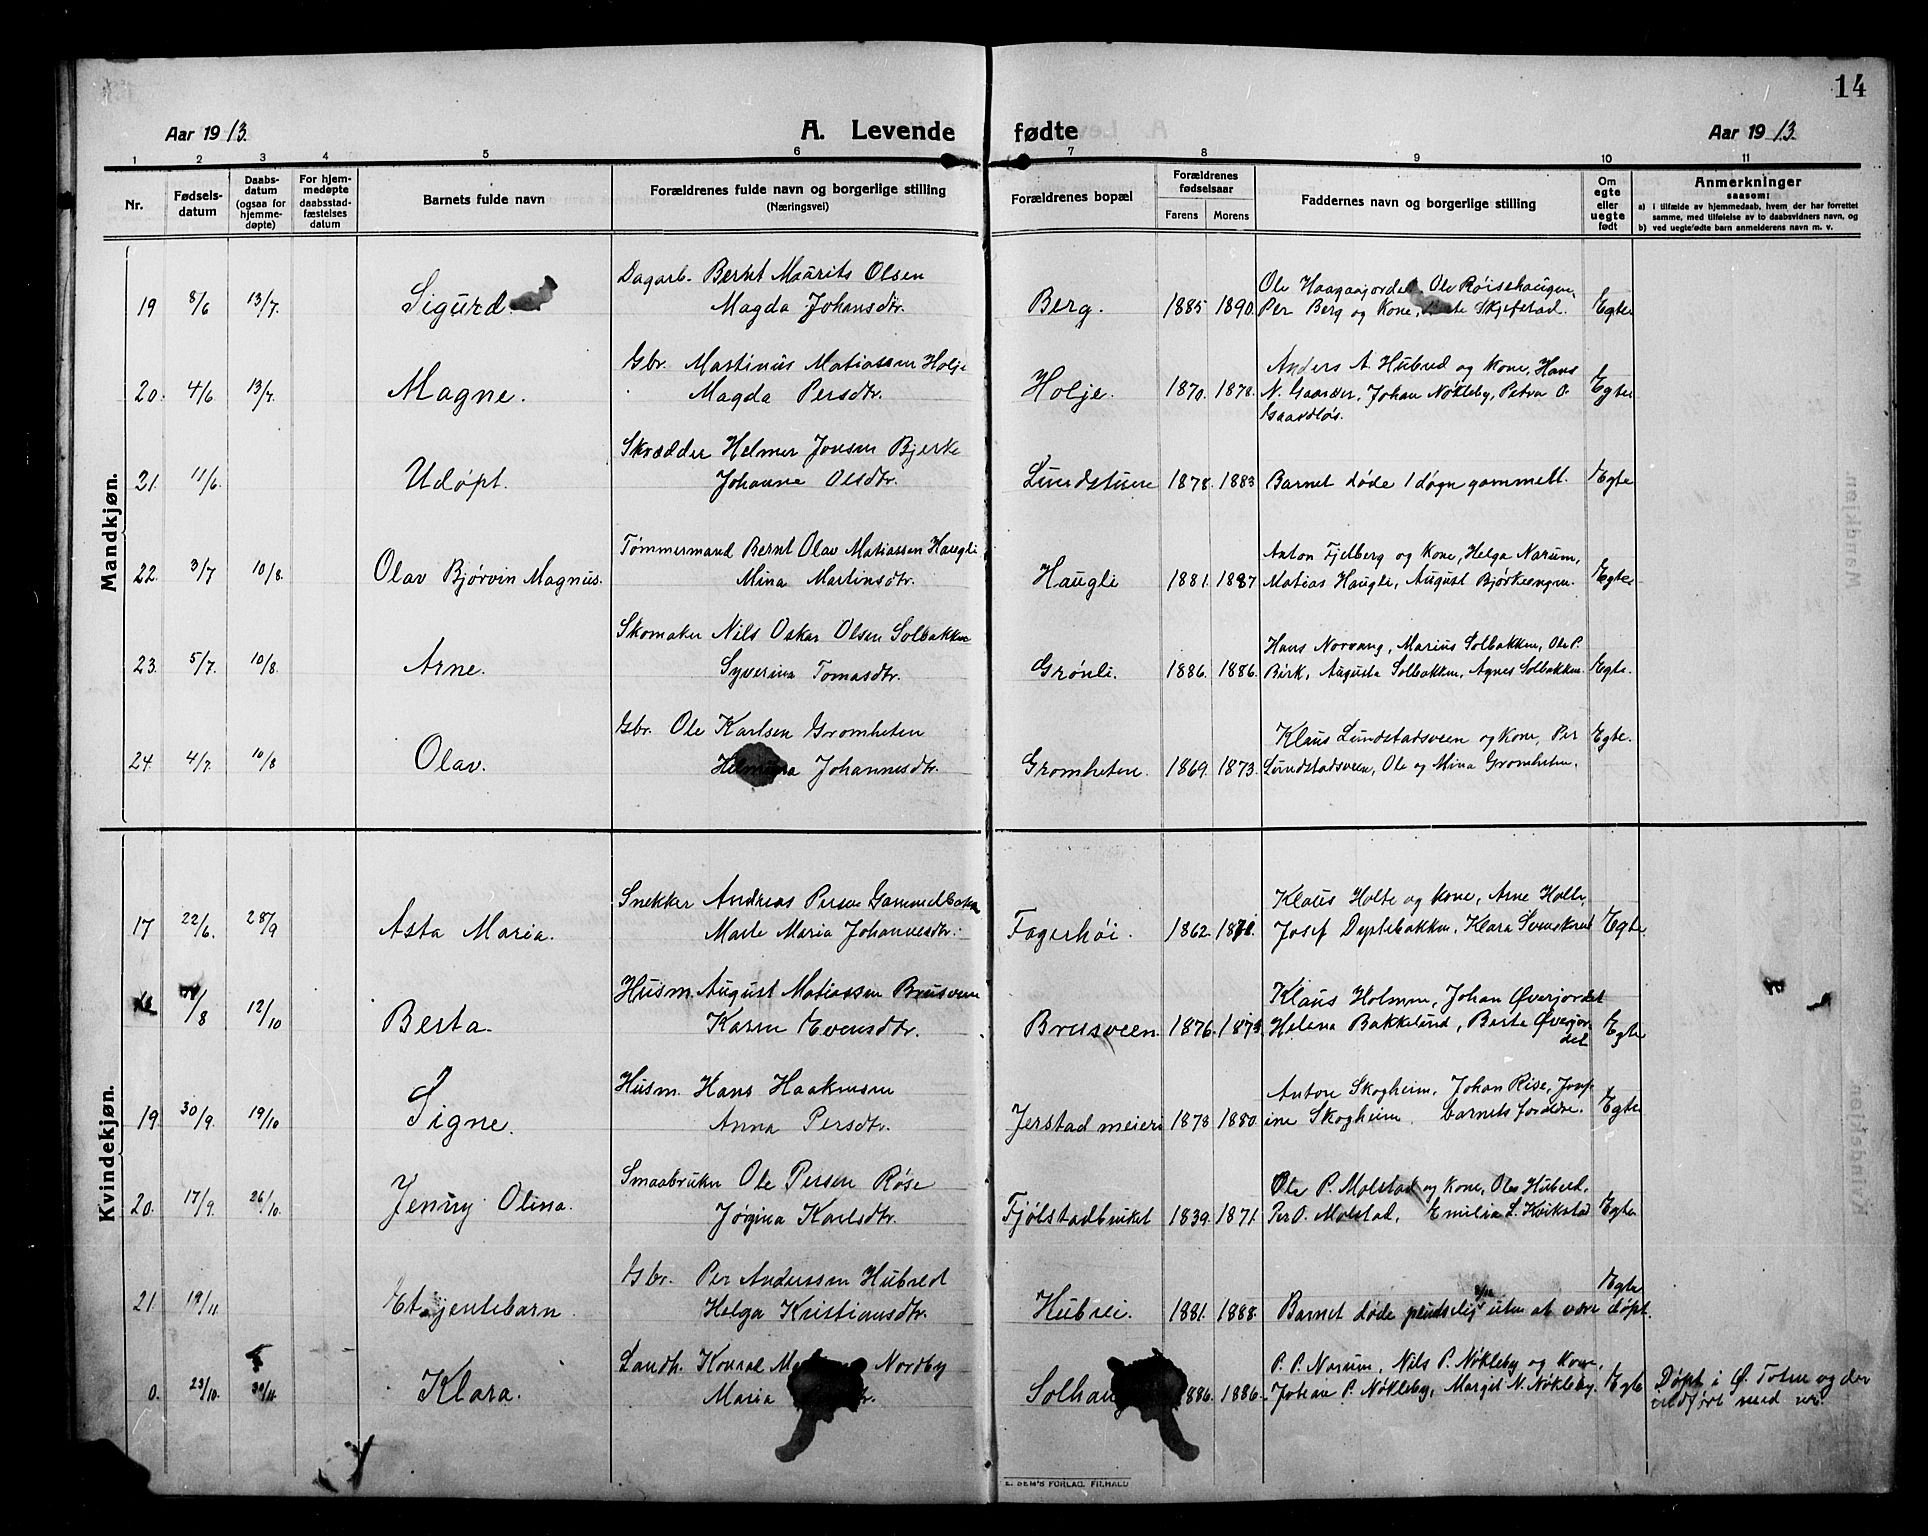 14
Aar 1913. A. Levende fødte Aar 1913.
1 2 3 4 5 6 7 8 9 10 11
Nr.
Fødsels-
datum
Daabs-
datum
(ogsaa for
hjemme-
døpte)
For hjem-
medøpte
daabsstad-
fæstelses
datum
Barnets fulde navn
Forældrenes fulde navn og borgerlige stilling
(Næringsvei)
Forældrenes bopæl
Forældrenes
fødselsaar
Farens Morens
Faddernes navn og borgerlige stilling
Om
egte
eller
uegte
født
Anmerkninger
saasom:
a) i tilfælde av hjemmedaab, hvem der har forrettet
samme, med tilføielse av to daabsvidners navn, og
b) ved uegtefødte barn anmelderens navn m. v.
Mandkjøn.
Dagarb. Bernt Maurits Olsen Ole Haagaajordet, Ole Røisehaugen,
19 8/6 13/7. Sigurd. Magda Johansdtr. Berg. 1885 1890. Per Berg og Kone, Skjefstad. Egte
Gbr. Martinus Matiassen Holje Anders A. Hubred og Kone, Hans
20. 4/6 13/7. Magne. Magda Persdtr. Holje. 1870. 1878. N. Gaarder, Johan Nøkleby, Petra O. Egte
Gaardløs.
Skrædder Helmer Jonsen Bjerke
21. 11/6. Udøpt. Johanne Olsdtr. Lundstuen 1878. 1883 Barnet døde 1 døgn gammelt. Egte
Tømmermand Bernt Olav Matiassen Haugli Anton Fjelberg og Kone, Helga Narum,
22. 3/7 10/8. Olav Bjørvin Magnus. Mina Martinsdtr. Haugli 1881. 1887 Matias Haugli, August Bjørkeengen. Egte
Skomaker Nils Oskar Olsen Solbakken Hans Norvang, Marius Solbakken, Ole P.
23. 5/7. 10/8. Arne. Syverina Tomasdtr. Grønli. 1886. 1886. Birk, Augusta Solbakken, Agnes Solbakken. Egte.
Gbr. Ole Karlsen Gromheten Klaus Lundstadsveen og Kone, Per Egte.
24. 4/7. 10/8 Olav. Johannesdtr. Gromheten. 1869. 1873. Lundstadsveen, Ole og Mina Gromheten.
Kvindekjøn.
Snekker Andreas Persen Gammelbakken Klaus Holte og Kone, Arne Holte,
17 22/6. 28/9 Asta Maria. Marte Maria Johannesdtr. Fagerhøi. 1862. 1871. Josef Dystebakken, Klara Svenskerud Egte.
Husm. August Matiassen Brusveen Klaus Holmen, Johan Øverjordet
/8 12/10 Berta. Karen Evensdtr. Brusveen. 1876. 1873. Helena Bakkelund, Berta Øverjor- Egte
det
Husm. Hans Haakensen Antone Skogheim, Johan Rise, Josef-
19. 30/9. 19/10 Signe. Anna Persdtr. Jerstad meieri 1878 1880. ine Skogheim. barnets foreldre. Egte
Smaabruker Ole Persen Røse Ole P. Molstad og Kone, Oles Hubred,
20. 17/9. 26/10. Jenny Olina. Jørgina Karlsdtr. Fjølstadbruket 1839. 1871. Per O. Molstad, Emilia L. Kvikstad Egte
Gbr. Per Anderssen Hubred Egte
21. 19/11 Et jentebarn. Helga Kristiansdtr. Hubrei. 1881. 1888. Barnet døde pludselig uten at være døpt.
Landh. Konrad Nordby P. P. Narum, Nils P. Nøkleby og Kone,
0. 23/10. 30/11 Klara. Maria Solhaug 1886. 1886. Johan P. Nøkleby, Margit N. Nøkleby. Egte Døpt i Ø. Toten og der
indført med nr.
E. SEM'S FORLAG. FR.HALD